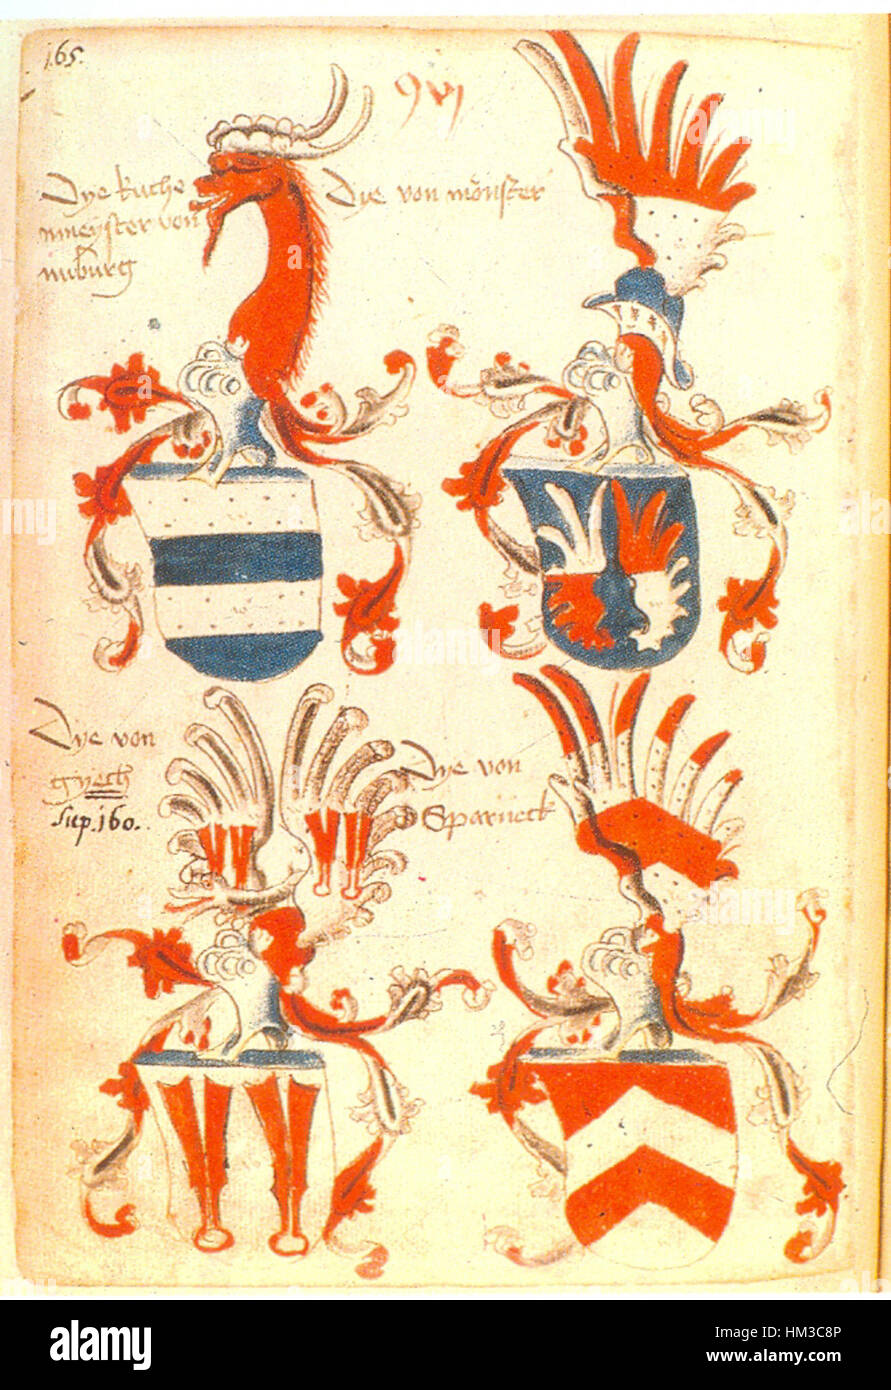 165.
9vj
Dye kuche
nmeyster von
nuburg
Dye von mönster
Dye von
gyech
sup. 160.
Dye von
Sparneck
alamy
alamy
Image ID: HM3C8P
www.alamy.com